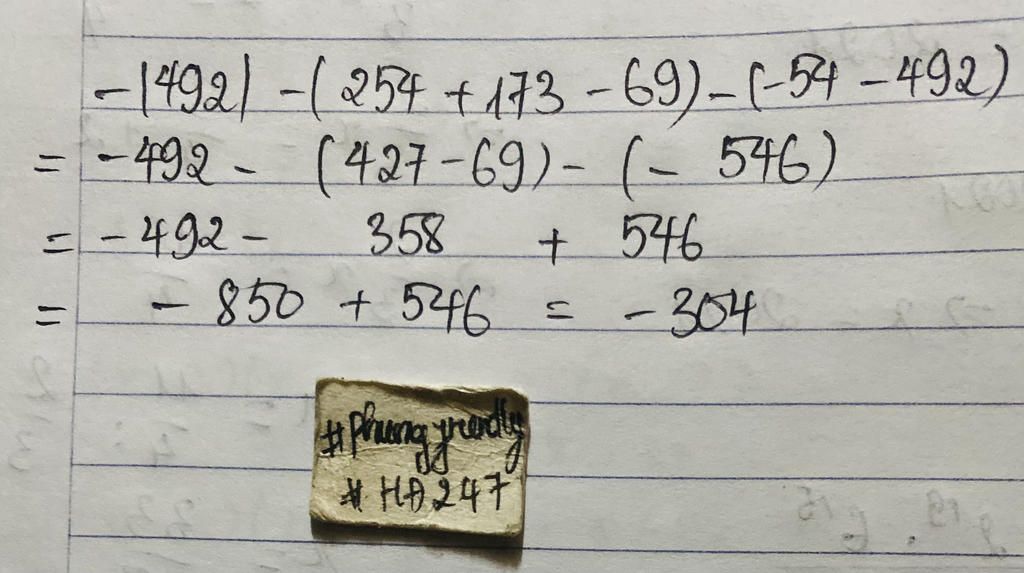 -|492| - (254 + 173 - 69) - (-54 - 492)
= -492 - (427 - 69) - (- 546)
= -492 - 358 + 546
= - 850 + 546 = - 304
# HĐ247